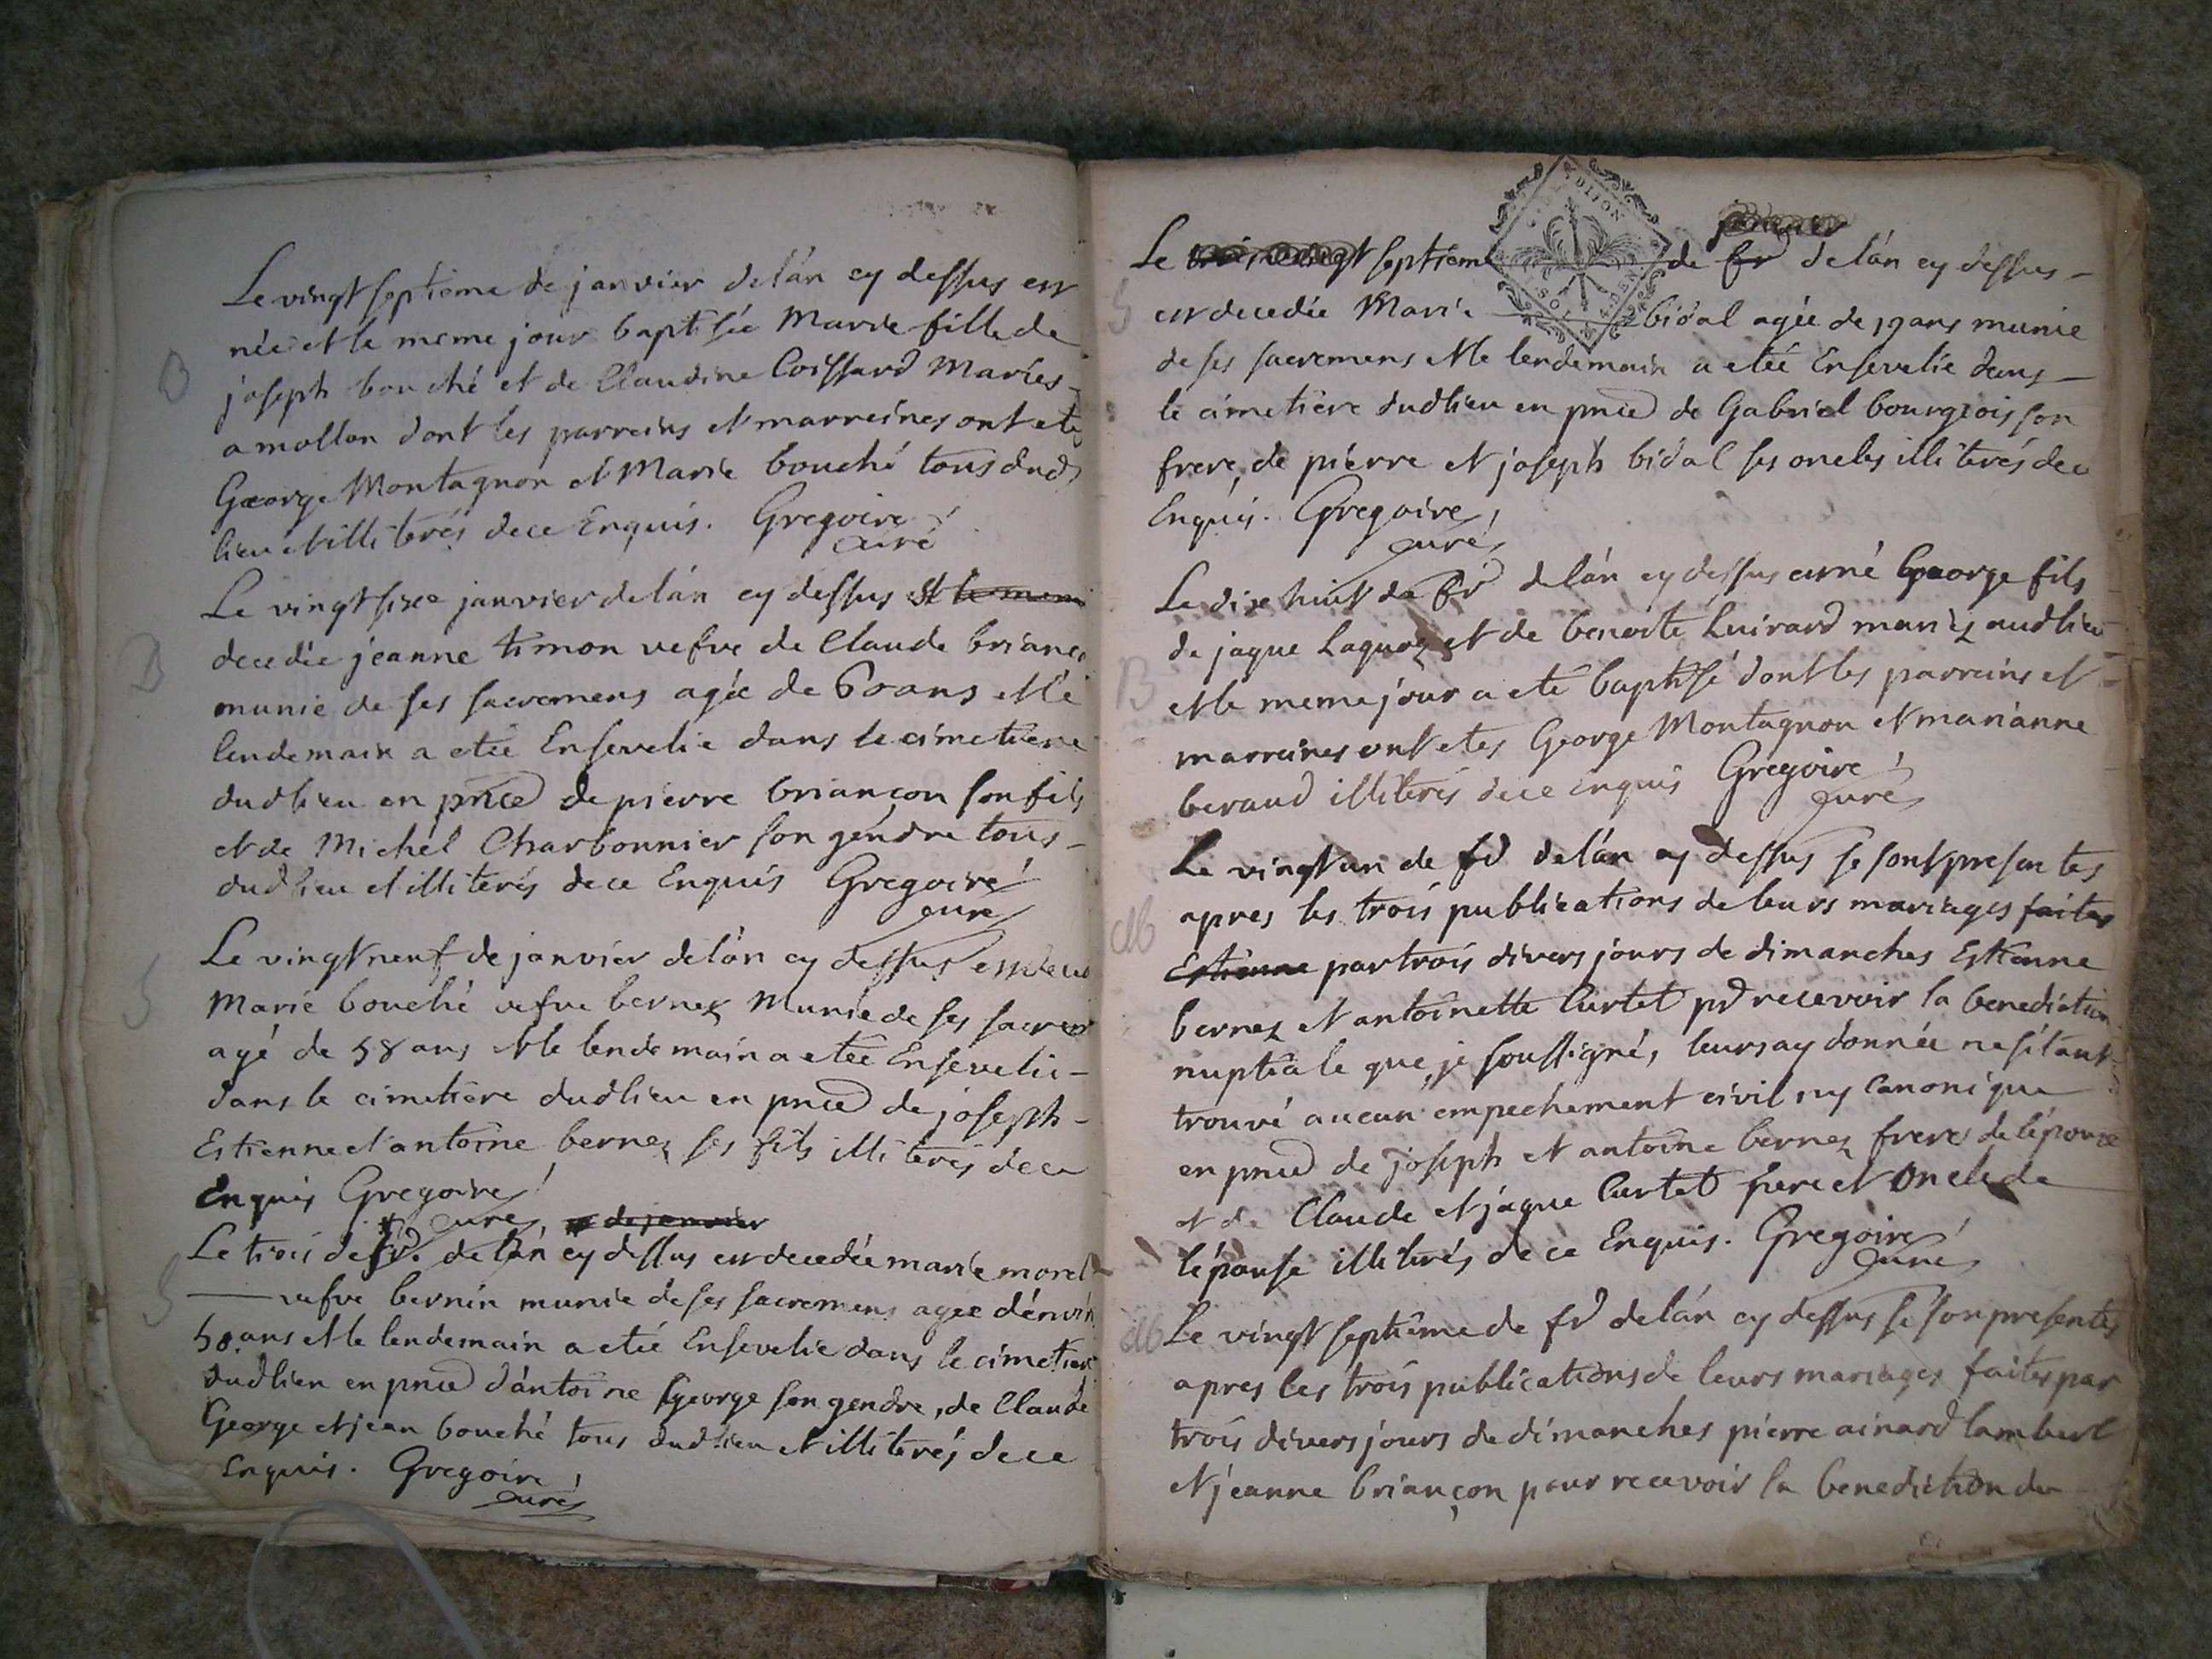 Le vingt septieme de janvier de l'an cy dessus est
née et le meme jour baptisée Marie fille de
joseph bouché et de Claudine Coissard Mariés
a mollon dont les parreins et marreines ont eté
George Montagnon et Marie bouché tous dud
lieu et illiterés de ce Enquis. Gregoire
curé
B
Le vingt sixe janvier de l'an cy dessus et le meme
decedée jeanne timon vefve de Claude briance
munie de ses sacremens agée de 60 ans et le
lendemain a etée Ensevelie dans le cimetiere
dudlieu en pnce de pierre briançon son fils
et de Michel Charbonnier son gendre tous
dudlieu et illiterés de ce Enquis Gregoire
curé
B
Le vingt neuf de janvier de l'an cy dessus est
Marie bouché vefve bernez Munie de ses sacrem
agé de 58 ans et le lendemain a etée Ensevelie
dans le cimetiere dudlieu en pnce de joseph
Estienne et antoine bernez ses fils illiterés de ce
Enquis Gregoire
curé, de janvier
S
Le trois de fr. de l'an cy dessus est decedée marie morel
vefve bernin munie de ses sacremens agée d'envir
50 ans et le lendemain a etée Ensevelie dans le cimetiere
dudlieu en pnce d'antoine george son gendre, de Claude
George et jean bouché tous dudlieu et illiterés de ce
Enquis. Gregoire
curé
S
DIJON
janvier
Le vingt septieme de fr de l'an cy dessus
est decedée Marie bidal agée de 19 ans munie
de ses sacremens et le lendemain a etée Ensevelie dans
le cimetière dudlieu en pnce de Gabriel bourgeois son
frere, de pierre et joseph bidal ses oncles illiterés de ce
Enquis. Gregoire
curé
S
Le dixe huit de fr de l'an cy dessus est né George fils
de jaque Laguoz et de benoite Luirard mariez audlieu
et le meme jour a eté baptisé dont les parreins et
marreines ont etes George Montagnon et marianne
beraud illiterés de ce enquis Gregoire
curé
B
Le vingt un de fr de l'an cy dessus se sont presentes
apres les trois publications de leurs mariages faites
Estienne par trois divers jours de dimanches Estienne
bernez et antoinette Curtet pr recevoir la benediction
nuptiale que je soussigné, leurs ay donnée ne s'étant
trouvé aucun empechement civil ny Canonique
en pnce de joseph et antoine bernez freres de l'epoux
et de Claude et jaque Curtet pere et Oncle de
l'épouse illiterés de ce Enquis. Gregoire
curé
M
Le vingt septième de fr de l'an cy dessus se son presentes
apres les trois publications de leurs mariages faites par
trois divers jours de dimanches pierre ainard lambert
et jeanne briançon pour recevoir la benediction du
M